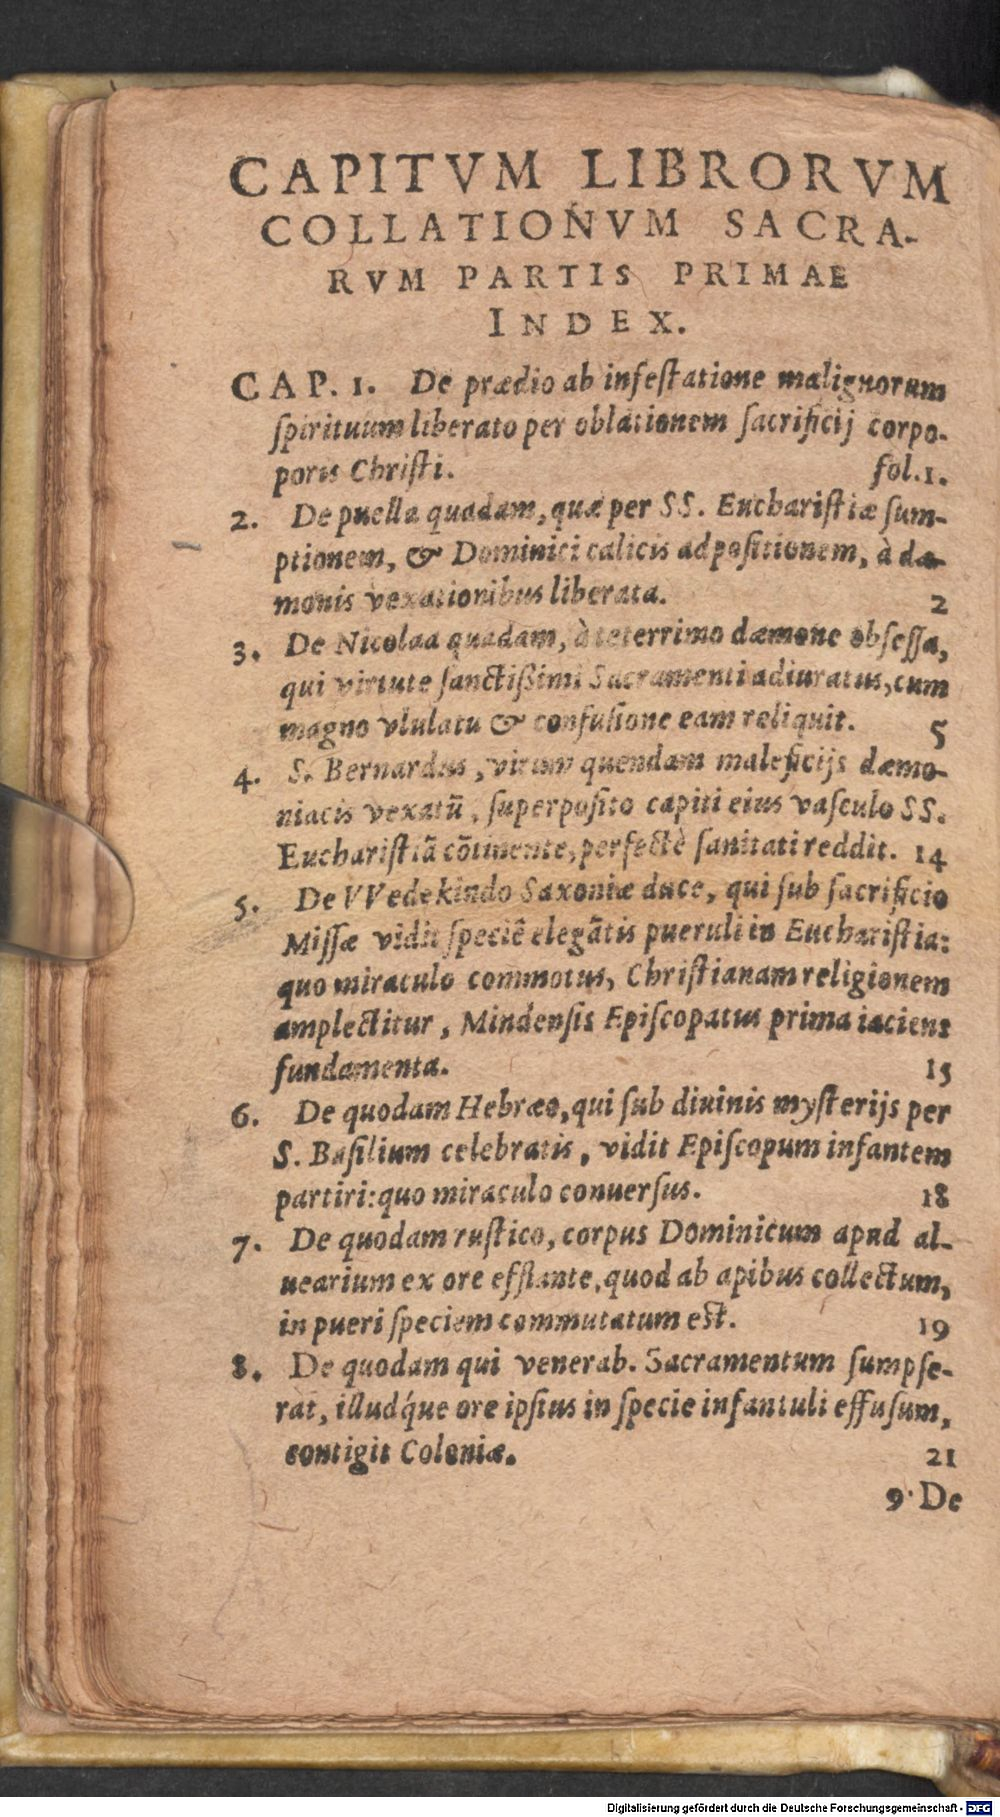 CAPITVM LIBRORVM
COLLATIONVM SACRA-
RVM PARTIS PRIMAE
INDEX.
CAP. 1. De prædio ab infeſtatione malignorum
ſpirituum liberato per oblationem ſacrificij corpo-
poris Chriſti. fol.1.
2. De puella quadam, quæ per SS. Euchariſtiæ ſum-
ptionem, & Dominici calicis adpoſitionem, à dæ-
monis vexationibus liberata. 2
3. De Nicolaa quadam, à teterrimo dæmone obſeſſa,
qui virtute ſanctißimi Sacramenti adiuratus, cum
magno vlulatu & confuſione eam reliquit. 5
4. S. Bernardus, virum quendam maleficijs dæmo-
niacis vexatū, ſuperpoſito capiti eius vaſculo SS.
Euchariſtiā cōtinente, perfectè ſanitati reddit. 14
5. De VVedekindo Saxoniæ duce, qui ſub ſacrificio
Miſſæ vidit ſpeciē elegātis pueruli in Euchariſtia:
quo miraculo commotus, Chriſtianam religionem
amplectitur, Mindenſis Epiſcopatus prima iaciens
fundamenta. 15
6. De quodam Hebræo, qui ſub diuinis myſterijs per
S. Baſilium celebratis, vidit Epiſcopum infantem
partiri: quo miraculo conuerſus. 18
7. De quodam ruſtico, corpus Dominicum apud al-
uearium ex ore efflante, quod ab apibus collectum,
in pueri ſpeciem commutatum eſt. 19
8. De quodam qui venerab. Sacramentum ſumpſe-
rat, illudq́ue ore ipſius in ſpecie infantuli effuſum,
contigit Coloniæ. 21
9. De
Digitalisierung gefördert durch die Deutsche Forschungsgemeinschaft - DFG